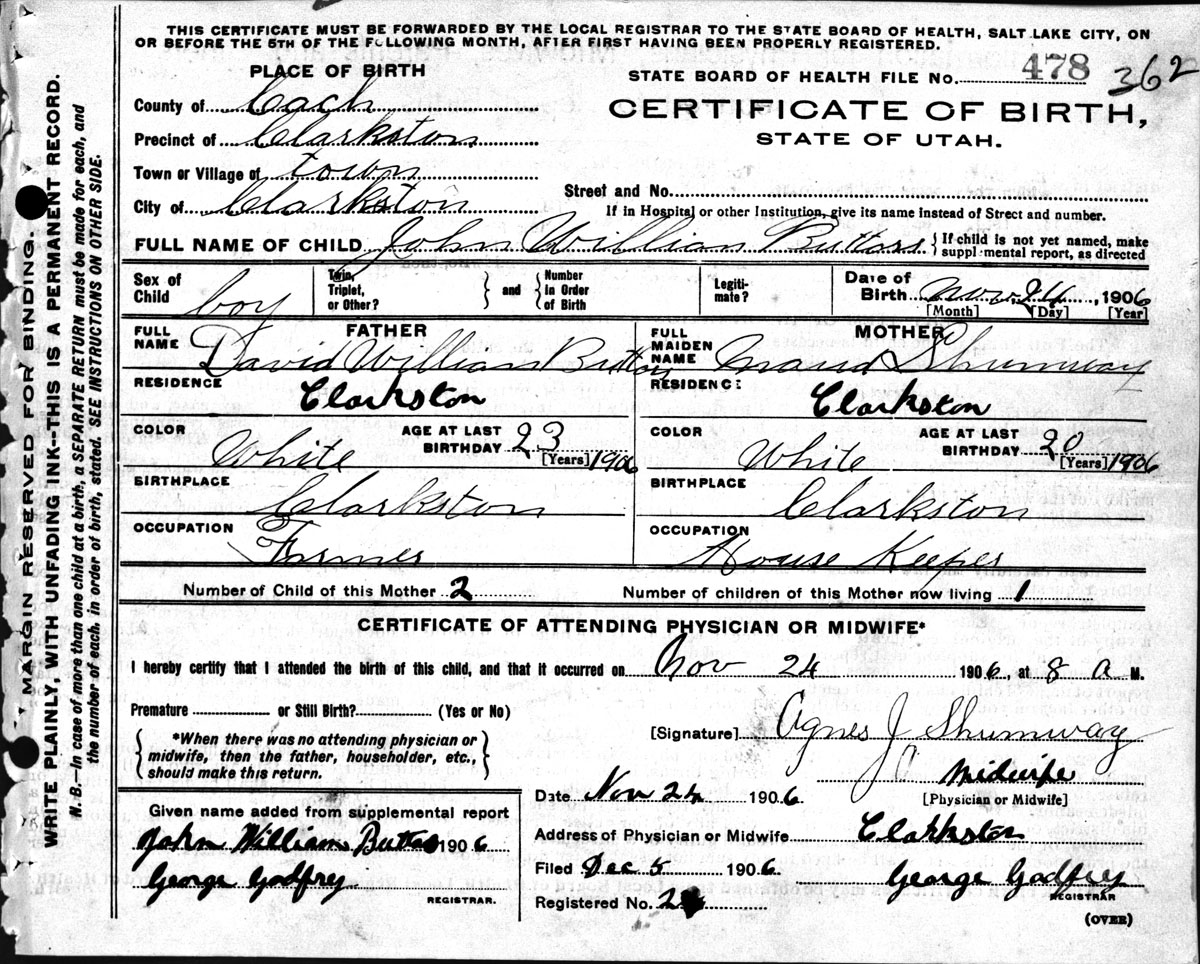 THIS CERTIFICATE MUST BE FORWARDED BY THE LOCAL REGISTRAR TO THE STATE BOARD OF HEALTH, SALT LAKE CITY, ON
OR BEFORE THE 5TH OF THE FOLLOWING MONTH, AFTER FIRST HAVING BEEN PROPERLY REGISTERED.
PLACE OF BIRTH
STATE BOARD OF HEALTH FILE No. 478 362
County of Cach
CERTIFICATE OF BIRTH,
Precinct of Clarkston
STATE OF UTAH.
Town or Village of town
Street and No.
City of Clarkston
If in Hospital or other Institution, give its name instead of Street and number.
FULL NAME OF CHILD John William Buttars { If child is not yet named, make supplemental report, as directed
Sex of Child boy Twin, Triplet, or Other? } and { Number in Order of Birth Legitimate? Date of Birth Nov. 24, 1906
[Month] [Day] [Year]
FATHER
FULL NAME David William Buttars
RESIDENCE
Clarkston
COLOR White AGE AT LAST BIRTHDAY 23 [Years] 1906
BIRTHPLACE
Clarkston
OCCUPATION
Farmer
MOTHER
FULL MAIDEN NAME Maud Shumway
RESIDENCE
Clarkston
COLOR White AGE AT LAST BIRTHDAY 20 [Years] 1906
BIRTHPLACE
Clarkston
OCCUPATION
House Keeper
Number of Child of this Mother 2 Number of children of this Mother now living 1
CERTIFICATE OF ATTENDING PHYSICIAN OR MIDWIFE*
I hereby certify that I attended the birth of this child, and that it occurred on Nov 24 1906, at 8 A M.
Premature or Still Birth? (Yes or No)
*When there was no attending physician or
midwife, then the father, householder, etc.,
should make this return.
[Signature] Agnes J Shumway
Midwife
[Physician or Midwife]
Date Nov 24 1906.
Given name added from supplemental report
John William Buttars 1906
George Godfrey
REGISTRAR.
Address of Physician or Midwife Clarkston
Filed Dec 5 1906. George Godfrey
REGISTRAR
Registered No. 2
(OVER)
MARGIN RESERVED FOR BINDING.
WRITE PLAINLY, WITH UNFADING INK--THIS IS A PERMANENT RECORD.
N. B.—In case of more than one child at a birth, a SEPARATE RETURN must be made for each, and
the number of each, in order of birth, stated. SEE INSTRUCTIONS ON OTHER SIDE.